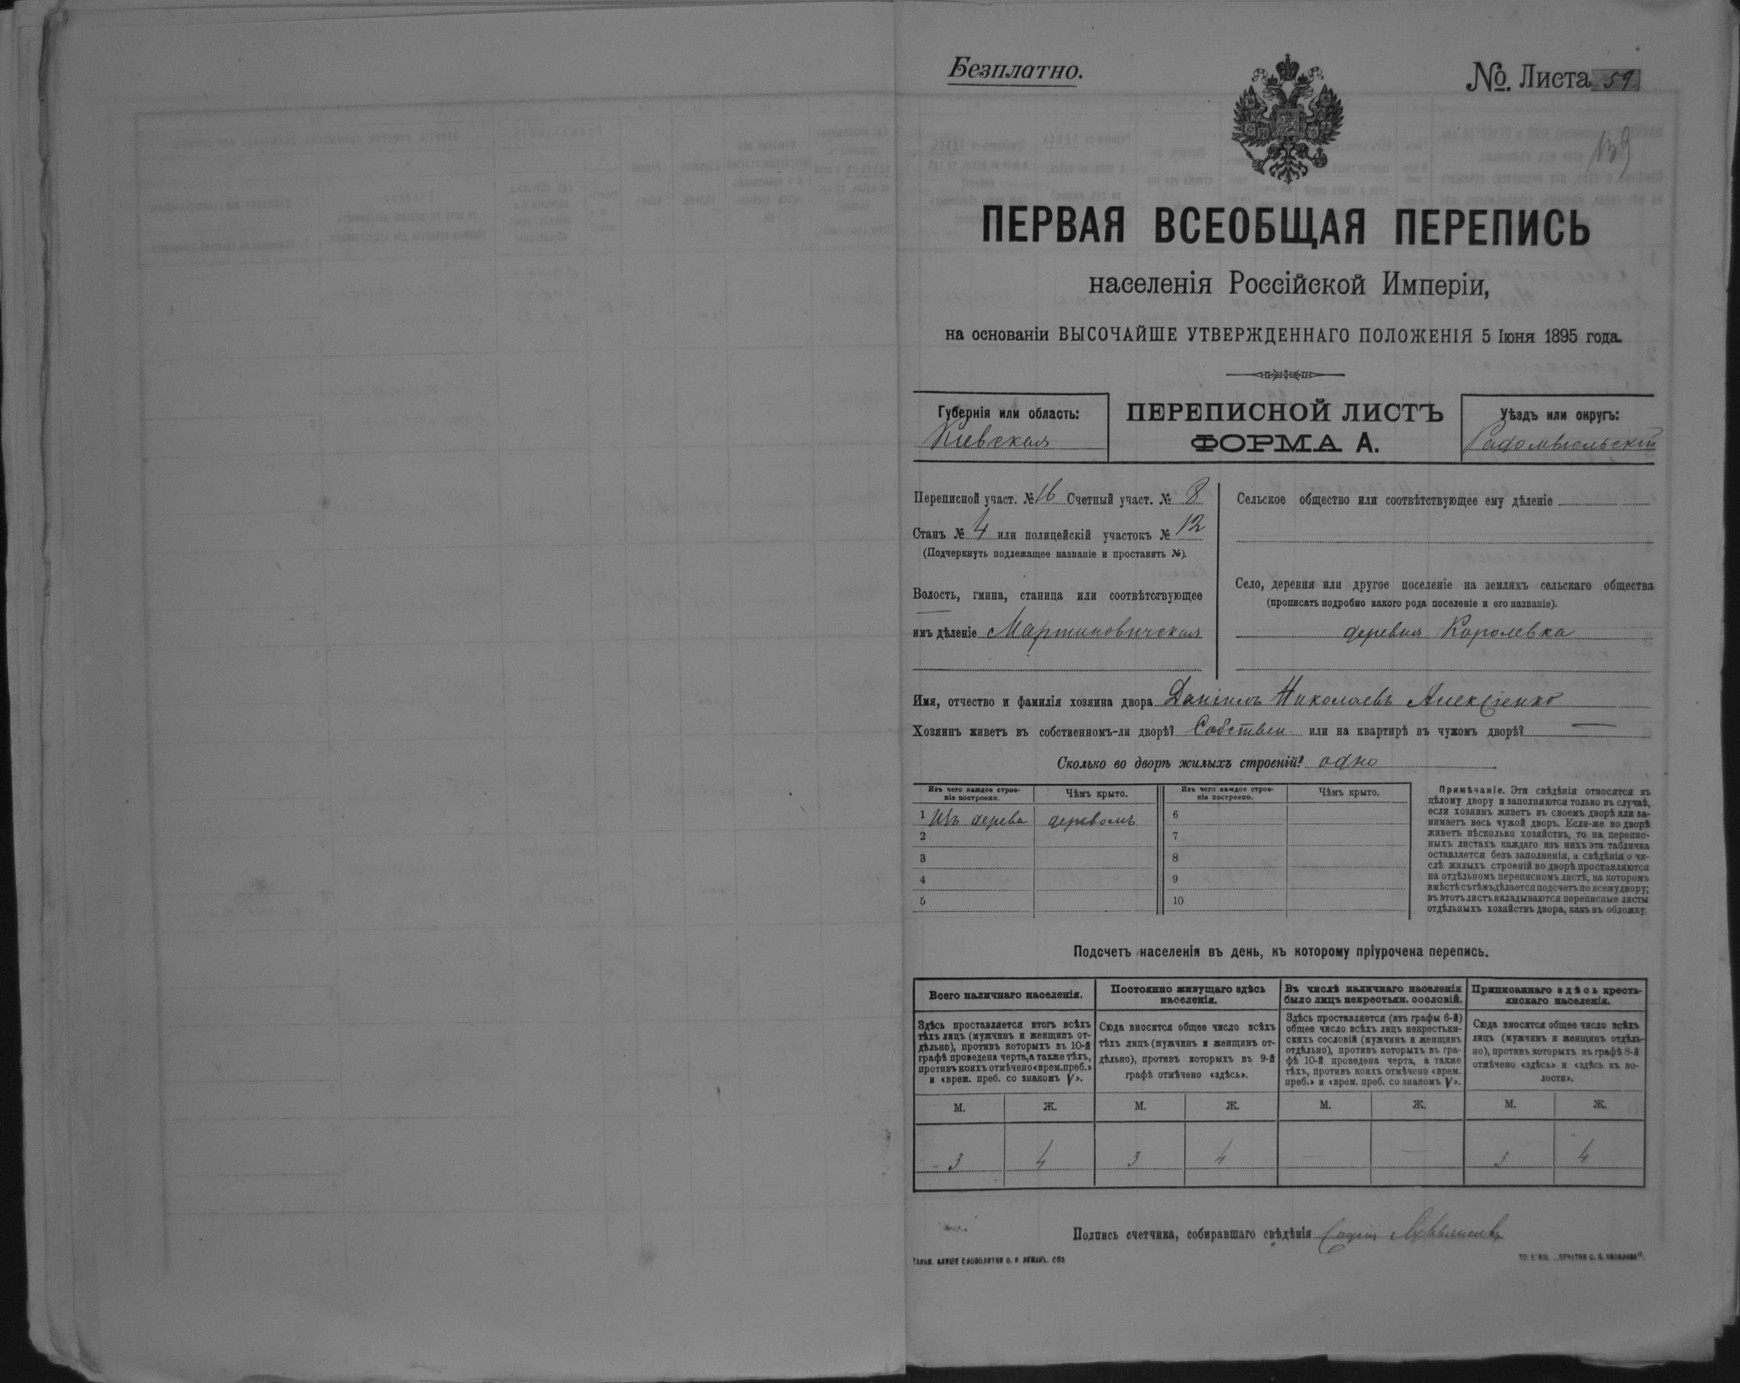 Безплатно.
№. Листа 59
ПЕРВАЯ ВСЕОБЩАЯ ПЕРЕПИСЬ
населенія Россійской Имперіи,
на основаніи ВЫСОЧАЙШЕ УТВЕРЖДЕННАГО ПОЛОЖЕНІЯ 5 Іюня 1895 года.
Губернія или область:
Кіевская
ПЕРЕПИСНОЙ ЛИСТЪ
ФОРМА А.
Уѣздъ или округъ:
Радомысльскій
Переписной участ. № 16 Счетный участ. № 8
Станъ № 4 или полицейскій участокъ № 12
(Подчеркнуть подлежащее названіе и проставить №).
Волость, гмина, станица или соотвѣтствующее
имъ дѣленіе Мартиновичская
Сельское общество или соотвѣтствующее ему дѣленіе
Село, деревня или другое поселеніе на земляхъ сельскаго общества
(прописать подробно какого рода поселеніе и его названіе).
деревня Королевка
Имя, отчество и фамилія хозяина двора Даніилъ Николаевъ Алексіенко
Хозяинъ живетъ въ собственномъ-ли дворѣ? Собствен или на квартирѣ въ чужомъ дворѣ? —
Сколько во дворѣ жилыхъ строеній? одно
Изъ чего каждое строе-
ніе построено.
Чѣмъ крыто.
Изъ чего каждое строе-
ніе построено.
Чѣмъ крыто.
1 Изъ дерева деревомъ 6
2 7
3 8
4 9
5 10
Примѣчаніе. Эти свѣдѣнія относятся къ
цѣлому двору и заполняются только въ случаѣ,
если хозяинъ живетъ въ своемъ дворѣ или за-
нимаетъ весь чужой дворъ. Если-же во дворѣ
живетъ нѣсколько хозяйствъ, то на перепис-
ныхъ листахъ каждаго изъ нихъ эта табличка
оставляется безъ заполненія, а свѣдѣнія о чи-
слѣ жилыхъ строеній во дворѣ проставляются
на отдѣльномъ переписномъ листѣ, на которомъ
вмѣстѣ съ тѣмъ дѣлается подсчетъ по всему двору;
въ этотъ листъ вкладываются переписные листы
отдѣльныхъ хозяйствъ двора, какъ въ обложку.
Подсчетъ населенія въ день, къ которому пріурочена перепись.
Всего наличнаго населенія.
Постоянно живущаго здѣсь
населенія.
Въ числѣ наличнаго населенія
было лицъ некрестьян. сословій.
Приписаннаго здѣсь кресть-
янскаго населенія.
Здѣсь проставляется итогъ всѣхъ
тѣхъ лицъ (мужчинъ и женщинъ от-
дѣльно), противъ которыхъ въ 10-й
графѣ проведена черта, а также тѣхъ,
противъ коихъ отмѣчено «врем. преб.»
и «врем. преб. со знакомъ V».
Сюда вносится общее число всѣхъ
тѣхъ лицъ (мужчинъ и женщинъ от-
дѣльно), противъ которыхъ въ 9-й
графѣ отмѣчено «здѣсь».
Здѣсь проставляется (изъ графы 6-й)
общее число всѣхъ лицъ некрестьян-
скихъ сословій (мужчинъ и женщинъ
отдѣльно), противъ которыхъ въ гра-
фѣ 10-й проведена черта, а также
тѣхъ, противъ коихъ отмѣчено «врем.
преб.» и «врем. преб. со знакомъ V».
Сюда вносится общее число всѣхъ
лицъ (мужчинъ и женщинъ отдѣль-
но), противъ которыхъ въ графѣ 8-й
отмѣчено «здѣсь» и «здѣсь къ во-
лости».
М. Ж. М. Ж. М. Ж. М. Ж.
3 4 3 4 — — 3 4
Подпись счетчика, собиравшаго свѣдѣнія